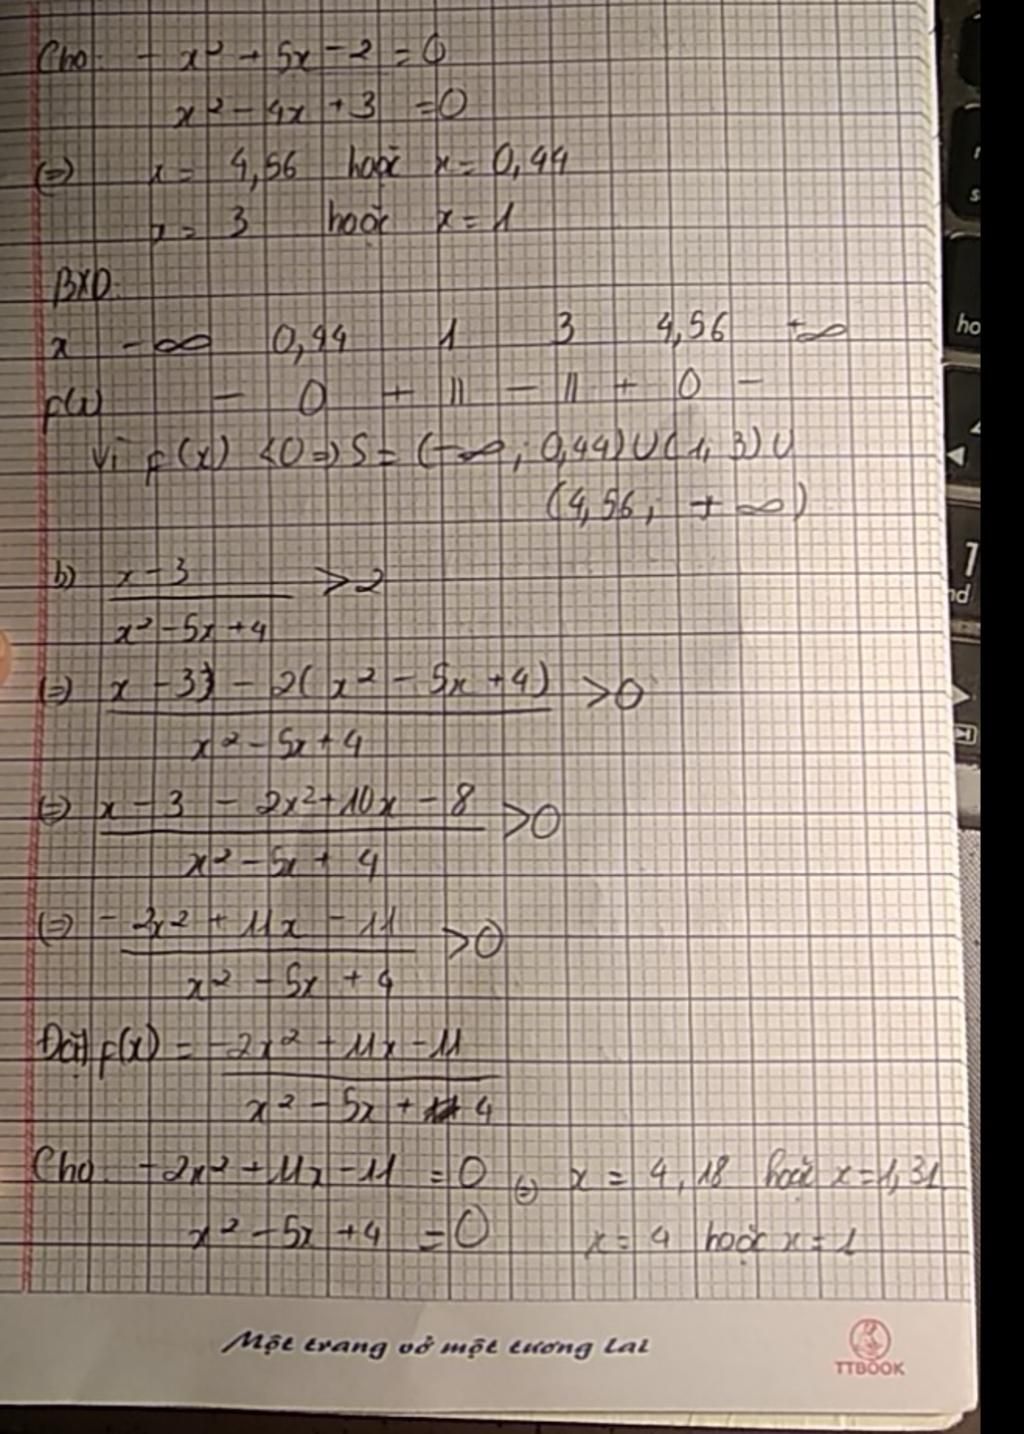 Cho: - x² + 5x - 2 = 0
x² - 4x + 3 = 0
(=) x = 4,56 hoặc x = 0,44
x = 3 hoặc x = 1
BXD:
x -∞ 0,44 1 3 4,56 +∞
f(x) - 0 + || - || + 0 -
Vì f(x) <0 => S = (-∞; 0,44) U (1, 3) U
(4,56; +∞)
b) x - 3 > 2
x² - 5x + 4
(=) x - 3) - 2( x² - 5x + 4) > 0
x² - 5x + 4
(=) x - 3 - 2x² + 10x - 8 > 0
x² - 5x + 4
(=) - 2x² + 11x - 11 > 0
x² - 5x + 4
Đặt f(x) = -2x² + 11x - 11
x² - 5x + 4
Cho: -2x² + 11x - 11 = 0 (=) x = 4,18 hoặc x = 1,31
x² - 5x + 4 = 0 x = 4 hoặc x = 1
Một trang vở một tương lai
TTBOOK
ho
1
nd
s